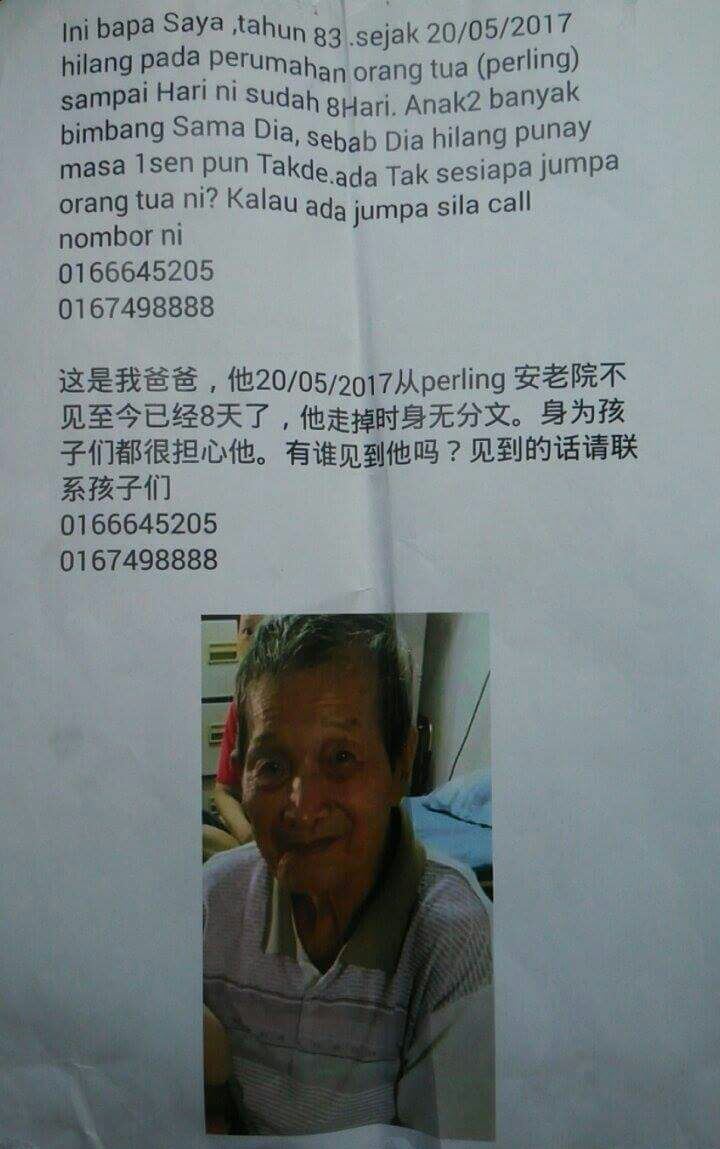 Ini bapa Saya ,tahun 83 .sejak 20/05/2017
hilang pada perumahan orang tua (perling)
sampai Hari ni sudah 8Hari. Anak2 banyak
bimbang Sama Dia, sebab Dia hilang punay
masa 1sen pun Takde.ada Tak sesiapa jumpa
orang tua ni? Kalau ada jumpa sila call
nombor ni
0166645205
0167498888
这是我爸爸，他20/05/2017从perling 安老院不
见至今已经8天了，他走掉时身无分文。身为孩
子们都很担心他。有谁见到他吗？见到的话请联
系孩子们
0166645205
0167498888